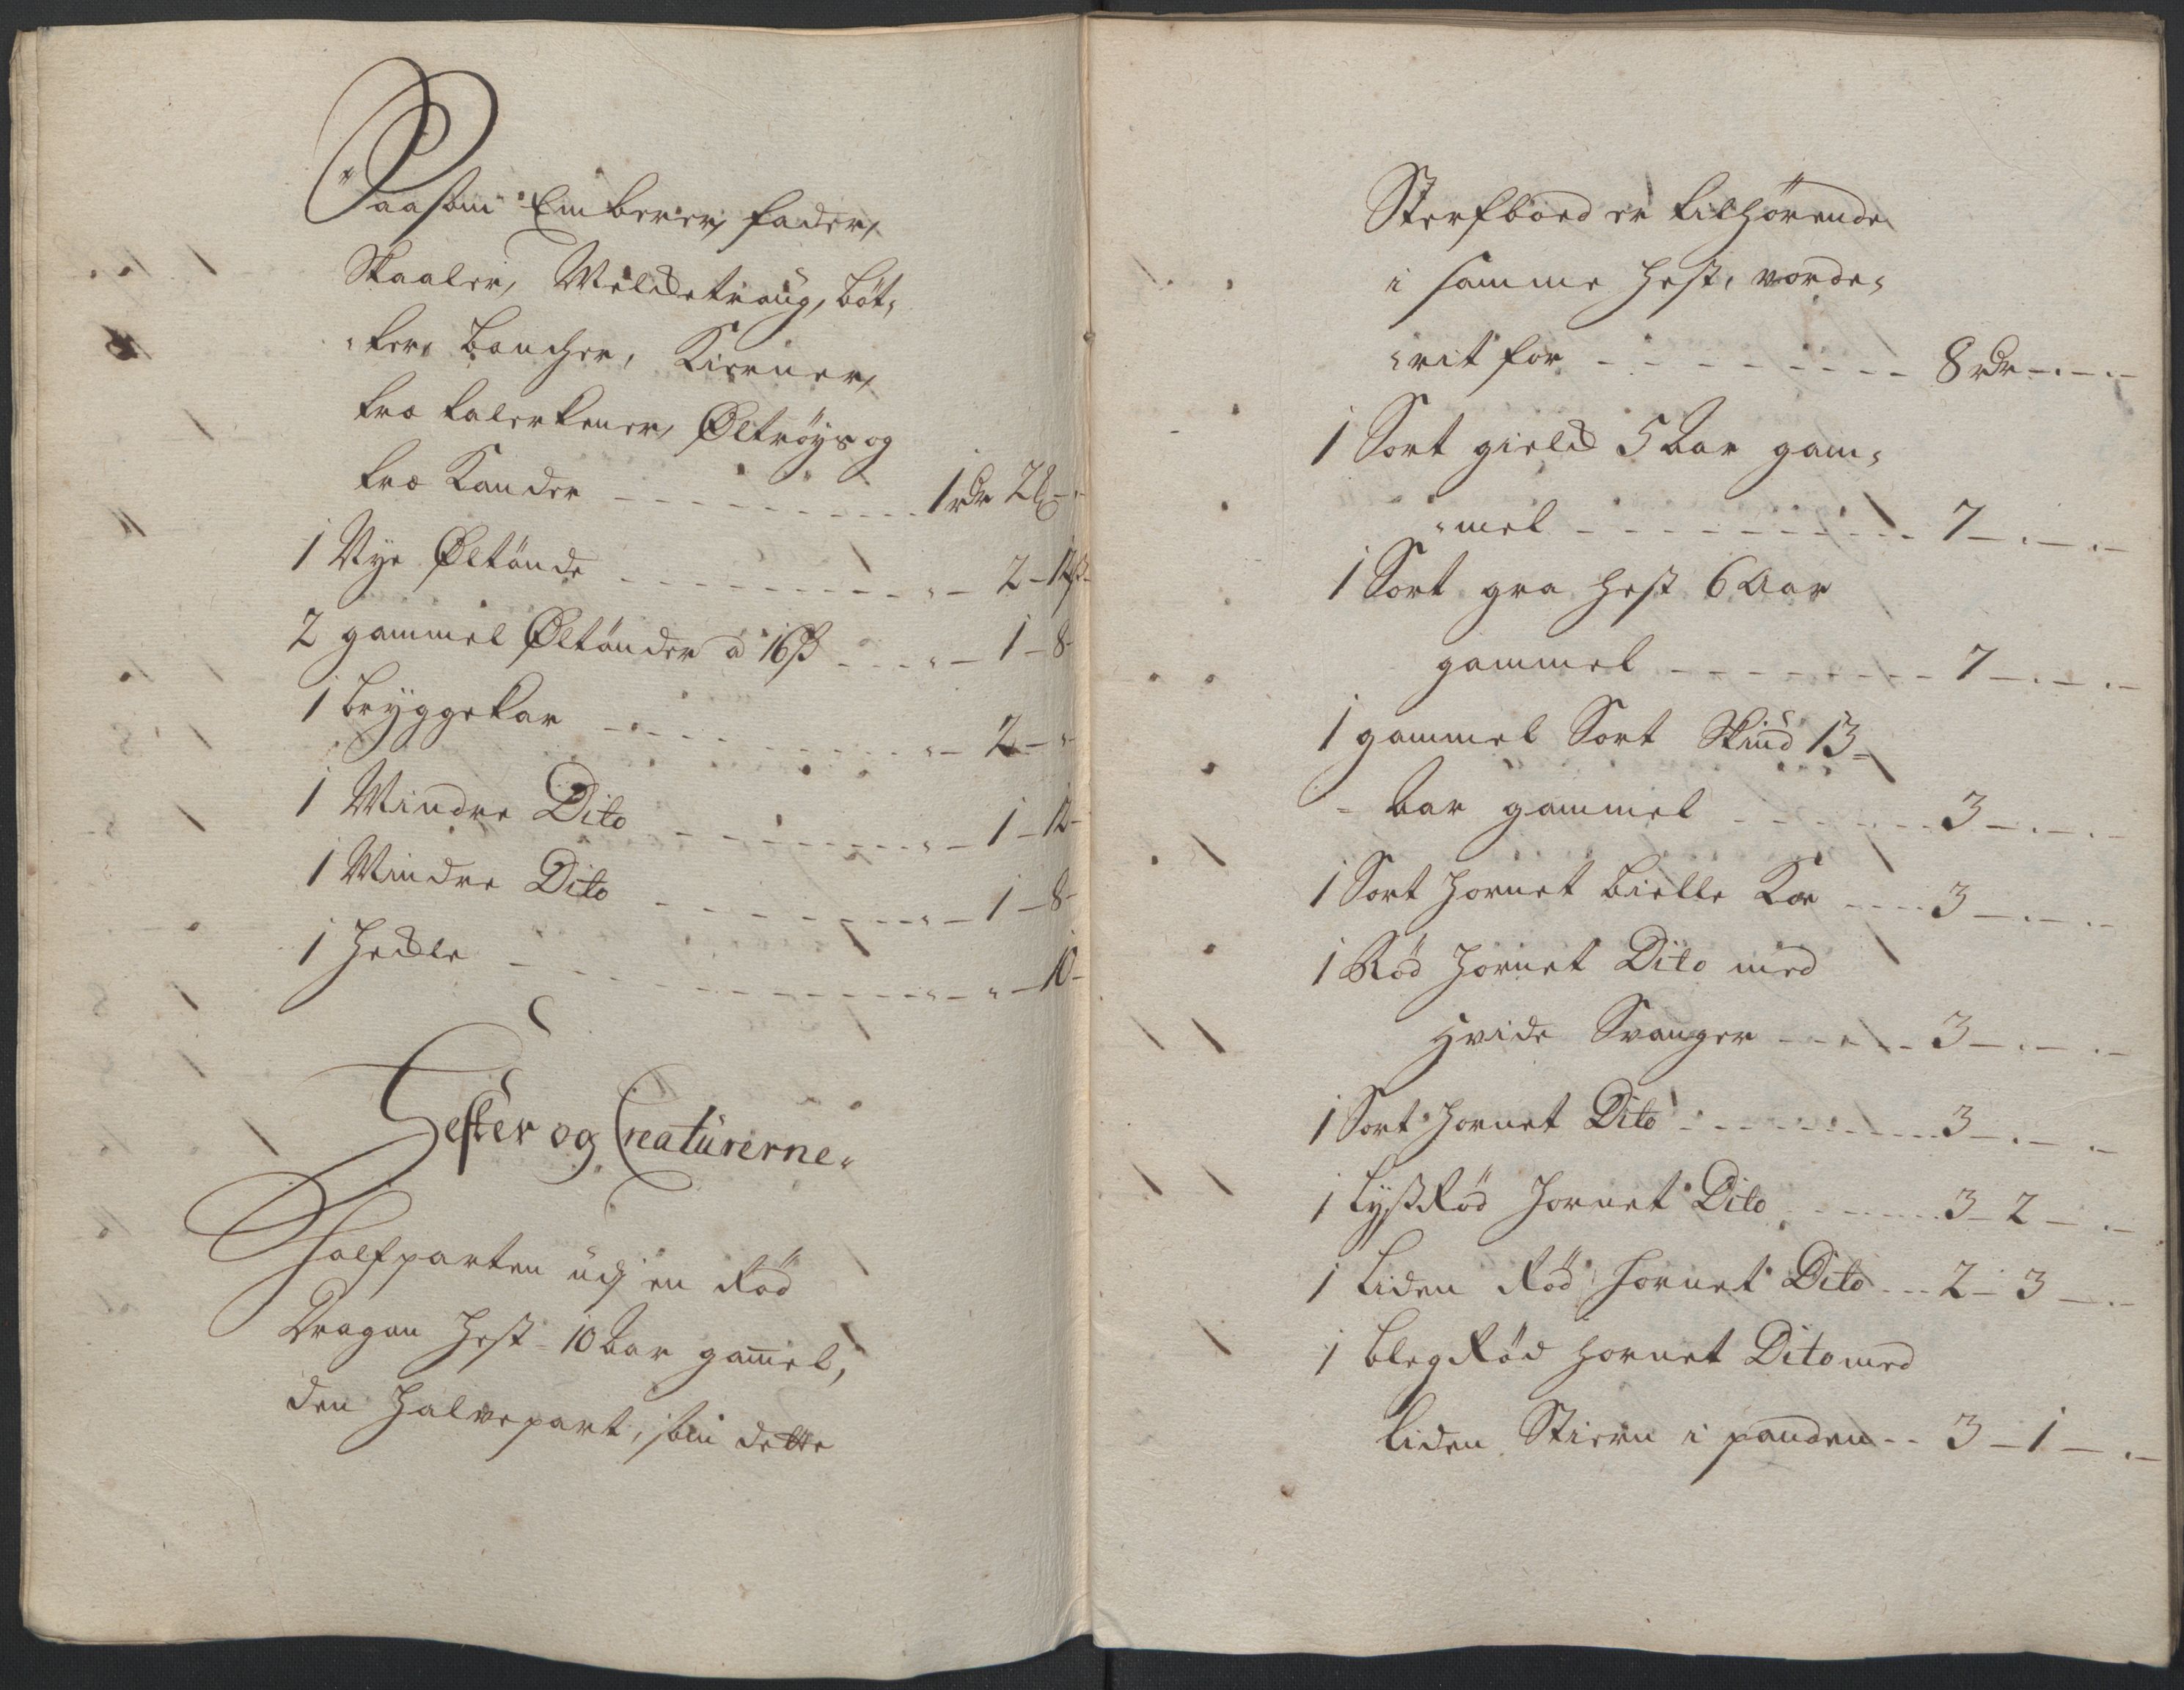 Saasom Emberer, fader,
Skaaler, Meldetraug, böt,
ker, bancher, Kierner,
træ talerkener, Øltröys og
træ Kander - - - 1 rdr 2 -
1 Nye Øltönde - - - " - 2 - 12 ß
2 gammel Øltönder a 16 ß - - - " - 1 - 8
1 bryggekar - - - " - 2 - "
1 Mindre Dito - - - " - 1 - 12
1 Mindre Dito - - - " - 1 - 8
1 Hedle - - - " - " - 10
Hester og Creaturerne.
Halfparten udj en Rød
Dragon Hest 10 Aar gamel,
den halvepart, som dette
Sterfboed er tilhörende
i samme hest, vorde,
rit for - - - 8 rdr - . - . -
1 Sort gield 5 Aar gam,
mel - - - 7 - . - . -
1 Sort graa Hest 6 Aar
gammel - - - 7 - . - . -
1 gammel Sort Skind 13
Aar gammel - - - 3 - . - . -
1 Sort Hornet bielle Koe - - - 3 - . - . -
1 Rød Hornet Dito med
Hvide Svanger - - - 3 - . - . -
1 Sort Hornet Dito - - - 3 - . - . -
1 LysRød Hornet Dito - - - 3 - 2 - . -
1 Liden Rød Hornet Dito - - - 2 - 3 - . -
1 blegRød Hornet Dito med
liden Stiern i panden - - 3 - 1 - . -